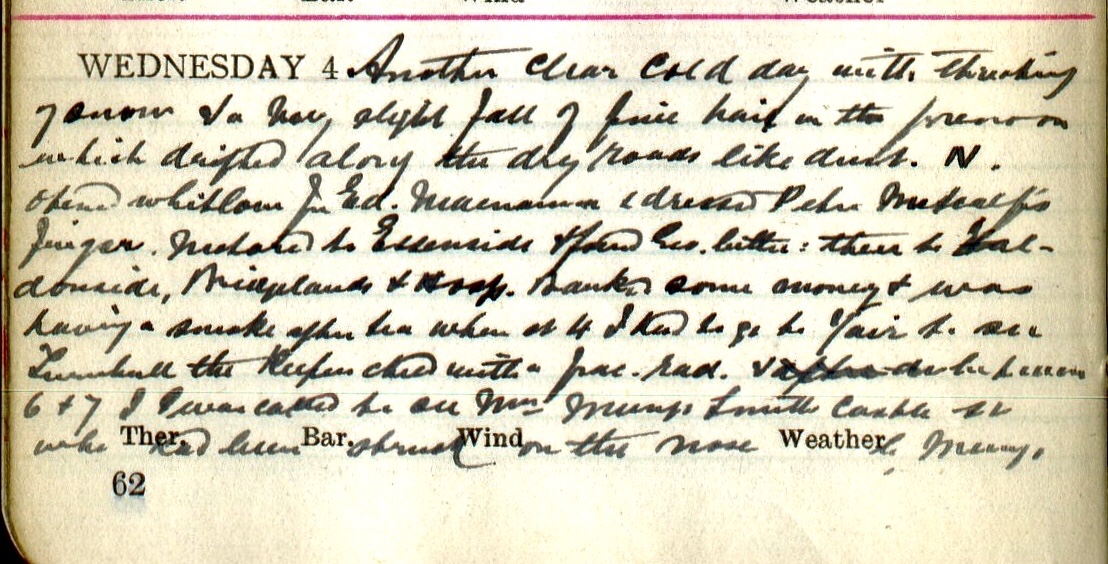 WEDNESDAY 4 Another clear cold day with threating
of snow & a very slight fall of fine hail in the forenoon
which drifted along the dry roads like dust. N.
opened whitlow for Ed. Macnamara & dressed Peter Metcalf's
finger. Motored to Ettenside & found Geo. better: then to
donside, Bridgelands & Hosp. Banked some money & was
having a smoke after tea when at 4 I had to go to Yair to see
Turnbull the Keeper's child with a frac. rad. & between
6 & 7 I was called to see Mrs Mungo Smith Castle St
who had been struck on the nose by Mungo.
Ther. Bar. Wind Weather
62